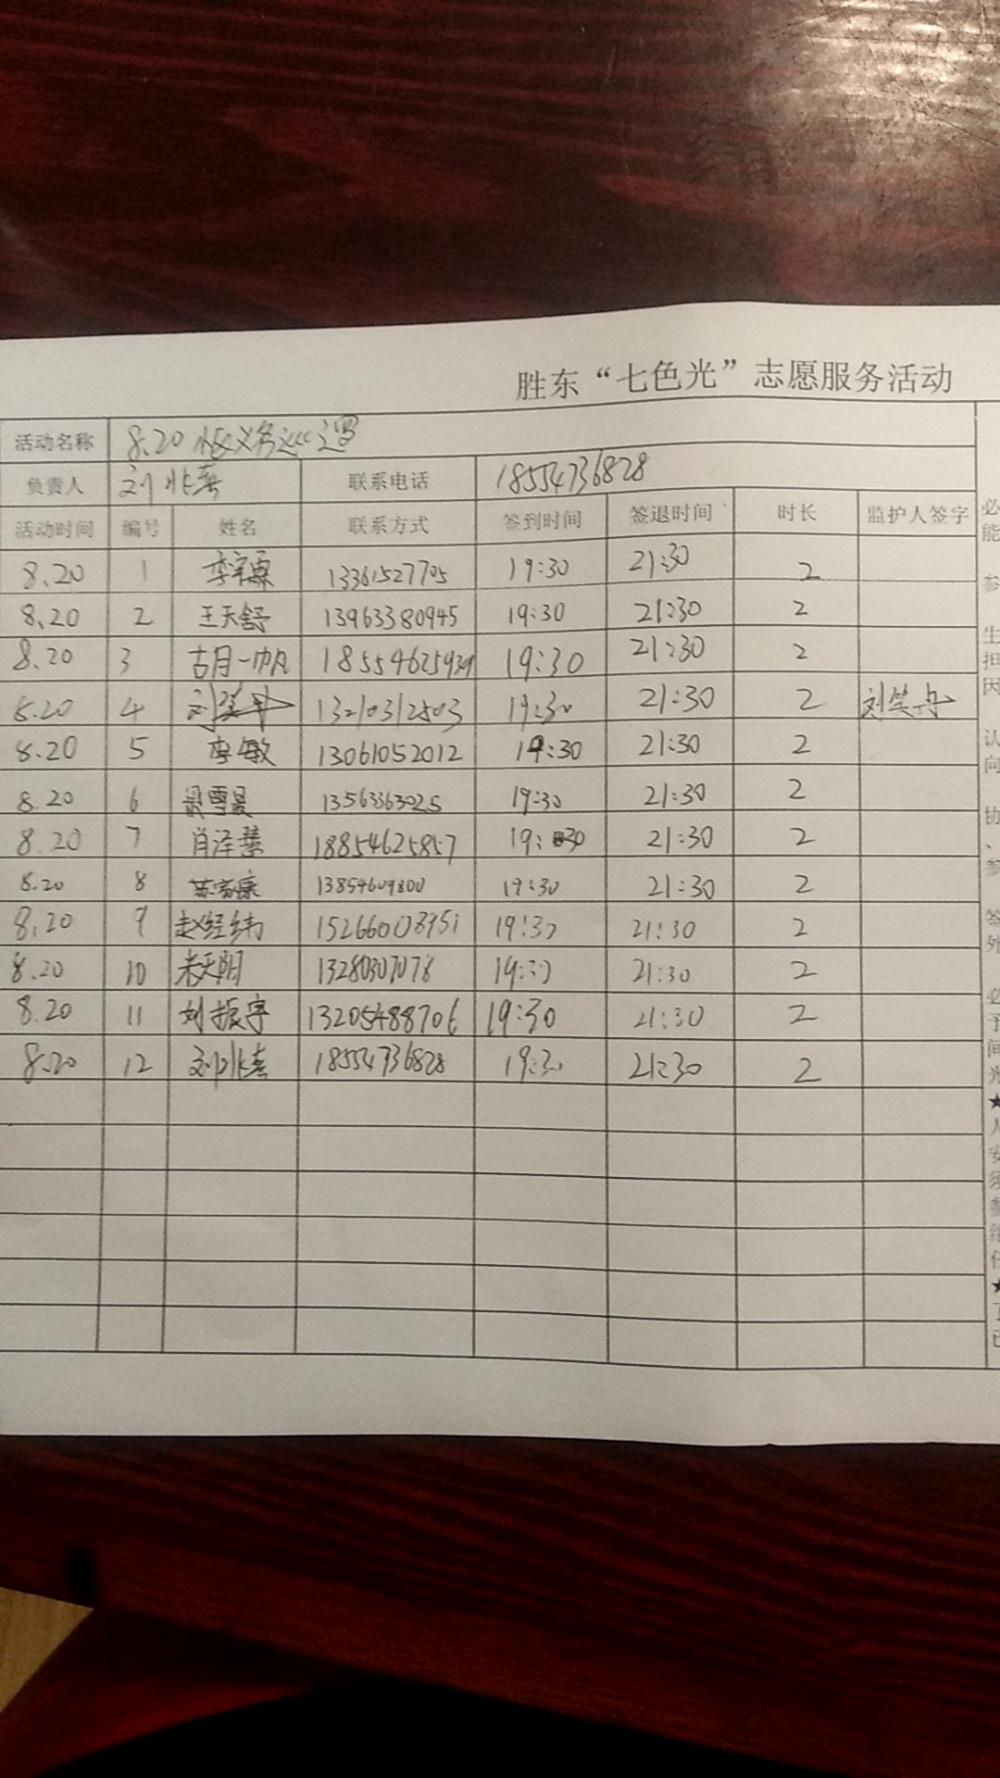 胜东“七色光”志愿服务活动
活动名称 8.20 义务巡逻
负责人 刘兆春 联系电话 18554736828
活动时间 编号 姓名 联系方式 签到时间 签退时间 时长 监护人签字
8.20 1 13361527705 19:30 21:30 2
8.20 2 王天舒 13963380945 19:30 21:30 2
8.20 3 胡一帆 18554625939 19:30 21:30 2
8.20 4 13210312503 19:30 21:30 2 刘笑丹
8.20 5 李敏 13061052012 19:30 21:30 2
8.20 6 13563363025 19:30 21:30 2
8.20 7 肖泽慧 18854625857 19:30 21:30 2
8.20 8 13854609800 19:30 21:30 2
8.20 9 赵经纬 15266008951 19:30 21:30 2
8.20 10 13280307078 19:30 21:30 2
8.20 11 刘振宇 13205488706 19:30 21:30 2
8.20 12 刘兆春 18554736828 19:30 21:30 2
必
能
参
生
担
因
认
向
协
、
参
签
外
必
予
间
光
★
人
安
须
参
★